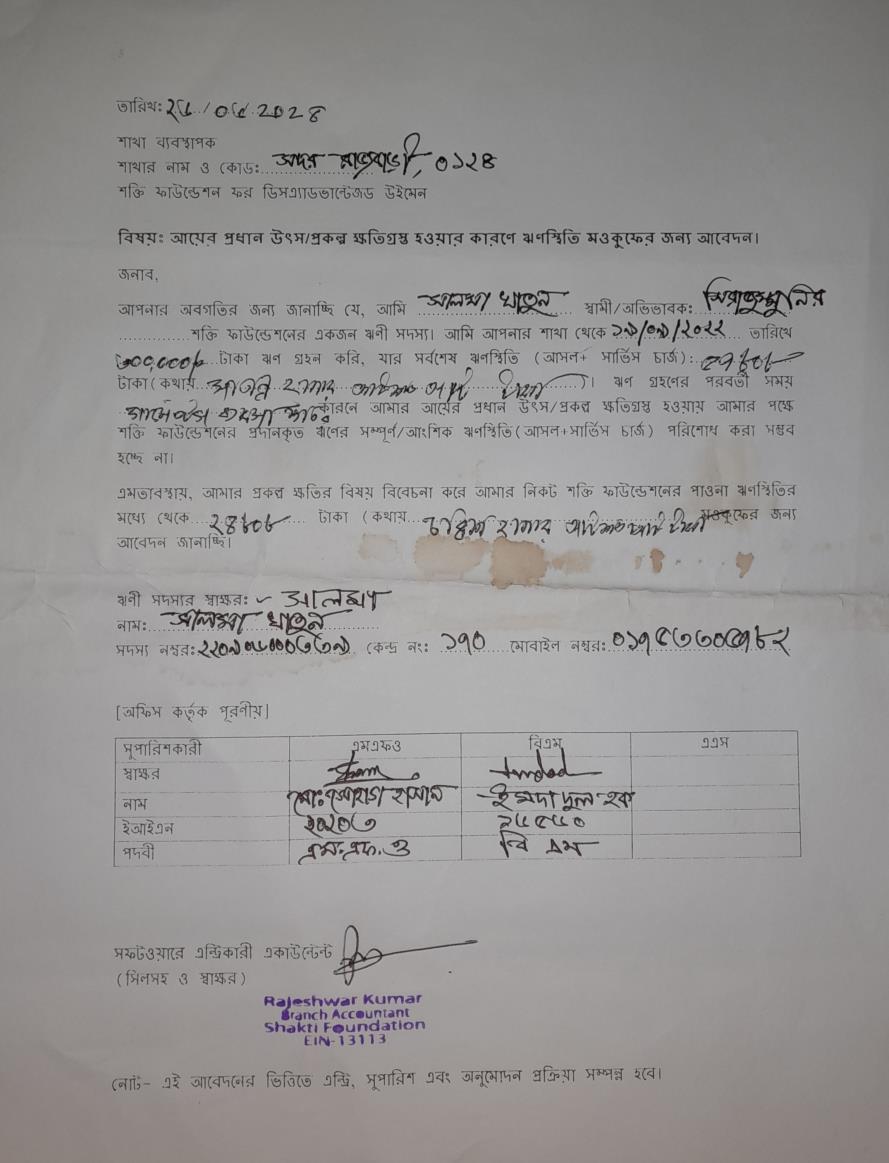 তারিখ: ২৫/০৫.2০2৪
শাখা ব্যবস্থাপক
শাখার নাম ও কোড: সদর রাজবাড়ী, ০১২৪
শক্তি ফাউন্ডেশন ফর ডিসএ্যাডভান্টেজড উইমেন
বিষয়: আয়ের প্রধান উৎস/প্রকল্প ক্ষতিগ্রস্থ হওয়ার কারণে ঋণস্থিতি মওকুফের জন্য আবেদন।
জনাব,
আপনার অবগতির জন্য জানাচ্ছি যে, আমি সালমা খাতুন স্বামী/অভিভাবক:
শক্তি ফাউন্ডেশনের একজন ঋণী সদস্য। আমি আপনার শাখা থেকে তারিখে
টাকা ঋণ গ্রহন করি, যার সর্বশেষ ঋণস্থিতি (আসল+ সার্ভিস চার্জ):
টাকা(কথায় হাজার আটশত আট টাকা)। ঋণ গ্রহণের পরবর্তী সময়
কারনে আমার আয়ের প্রধান উৎস/প্রকল্প ক্ষতিগ্রস্থ হওয়ায় আমার পক্ষে
শক্তি ফাউন্ডেশনের প্রদানকৃত ঋণের সম্পূর্ণ/আংশিক ঋণস্থিতি(আসল+সার্ভিস চার্জ) পরিশোধ করা সম্ভব
হচ্ছে না।
এমতাবস্থায়, আমার প্রকল্প ক্ষতির বিষয় বিবেচনা করে আমার নিকট শক্তি ফাউন্ডেশনের পাওনা ঋণস্থিতির
মধ্যে থেকে ২৪৮০৮ টাকা (কথায় চব্বিশ হাজার আটশত আট টাকা মওকুফের জন্য
আবেদন জানাচ্ছি।
ঋণী সদস্যর স্বাক্ষর: সালমা
নাম: সালমা খাতুন
সদস্য নম্বর: কেন্দ্র নং: ১৭০ মোবাইল নম্বর:
[অফিস কর্তৃক পূরণীয়]
সুপারিশকারী এমএফও বিএম এএস
স্বাক্ষর
নাম মোঃ সোহাগ হাসান ইমদাদুল হক
ইআইএন ২০২০৩
পদবী এম.এফ.ও বি এম
সফটওয়ারে এন্ট্রিকারী একাউন্টেন্ট
(সিলসহ ও স্বাক্ষর)
Rajeshwar Kumar
Branch Accountant
Shakti Foundation
EIN-13113
নোট- এই আবেদনের ভিত্তিতে এন্ট্রি, সুপারিশ এবং অনুমোদন প্রক্রিয়া সম্পন্ন হবে।